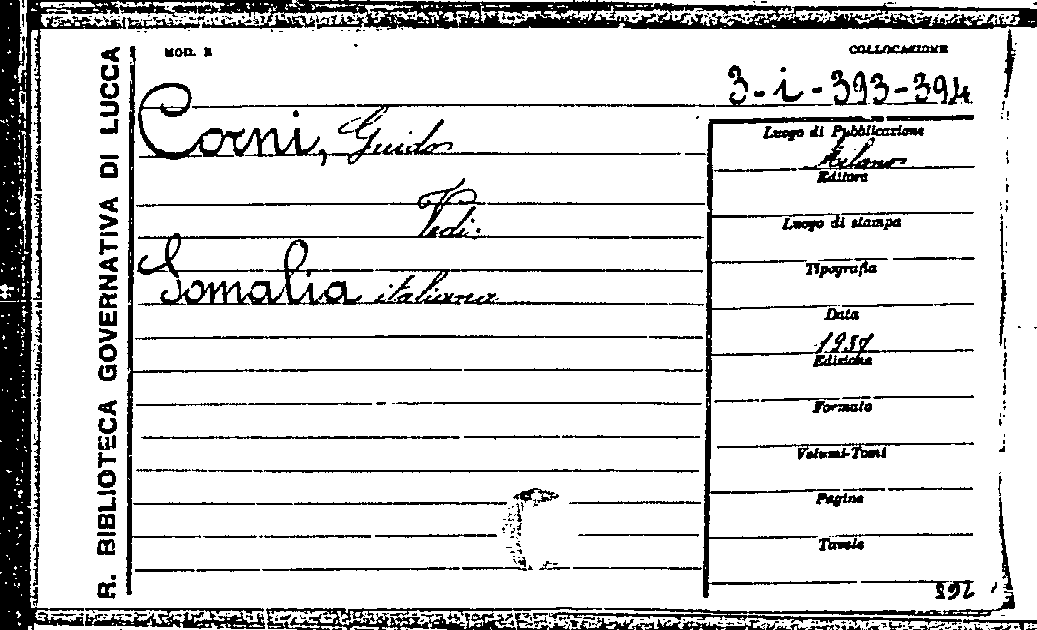 R. BIBLIOTECA GOVERNATIVA DI LUCCA
MOD. R
COLLOCAZIONE
3-i-393-394
Corni, Guido
Vedi:
Somalia italiana
Luogo di Pubblicazione
Milano
Editore
Luogo di stampa
Tipografia
Data
1937
Edizione
Formato
Volumi-Tomi
Pagine
Tavole